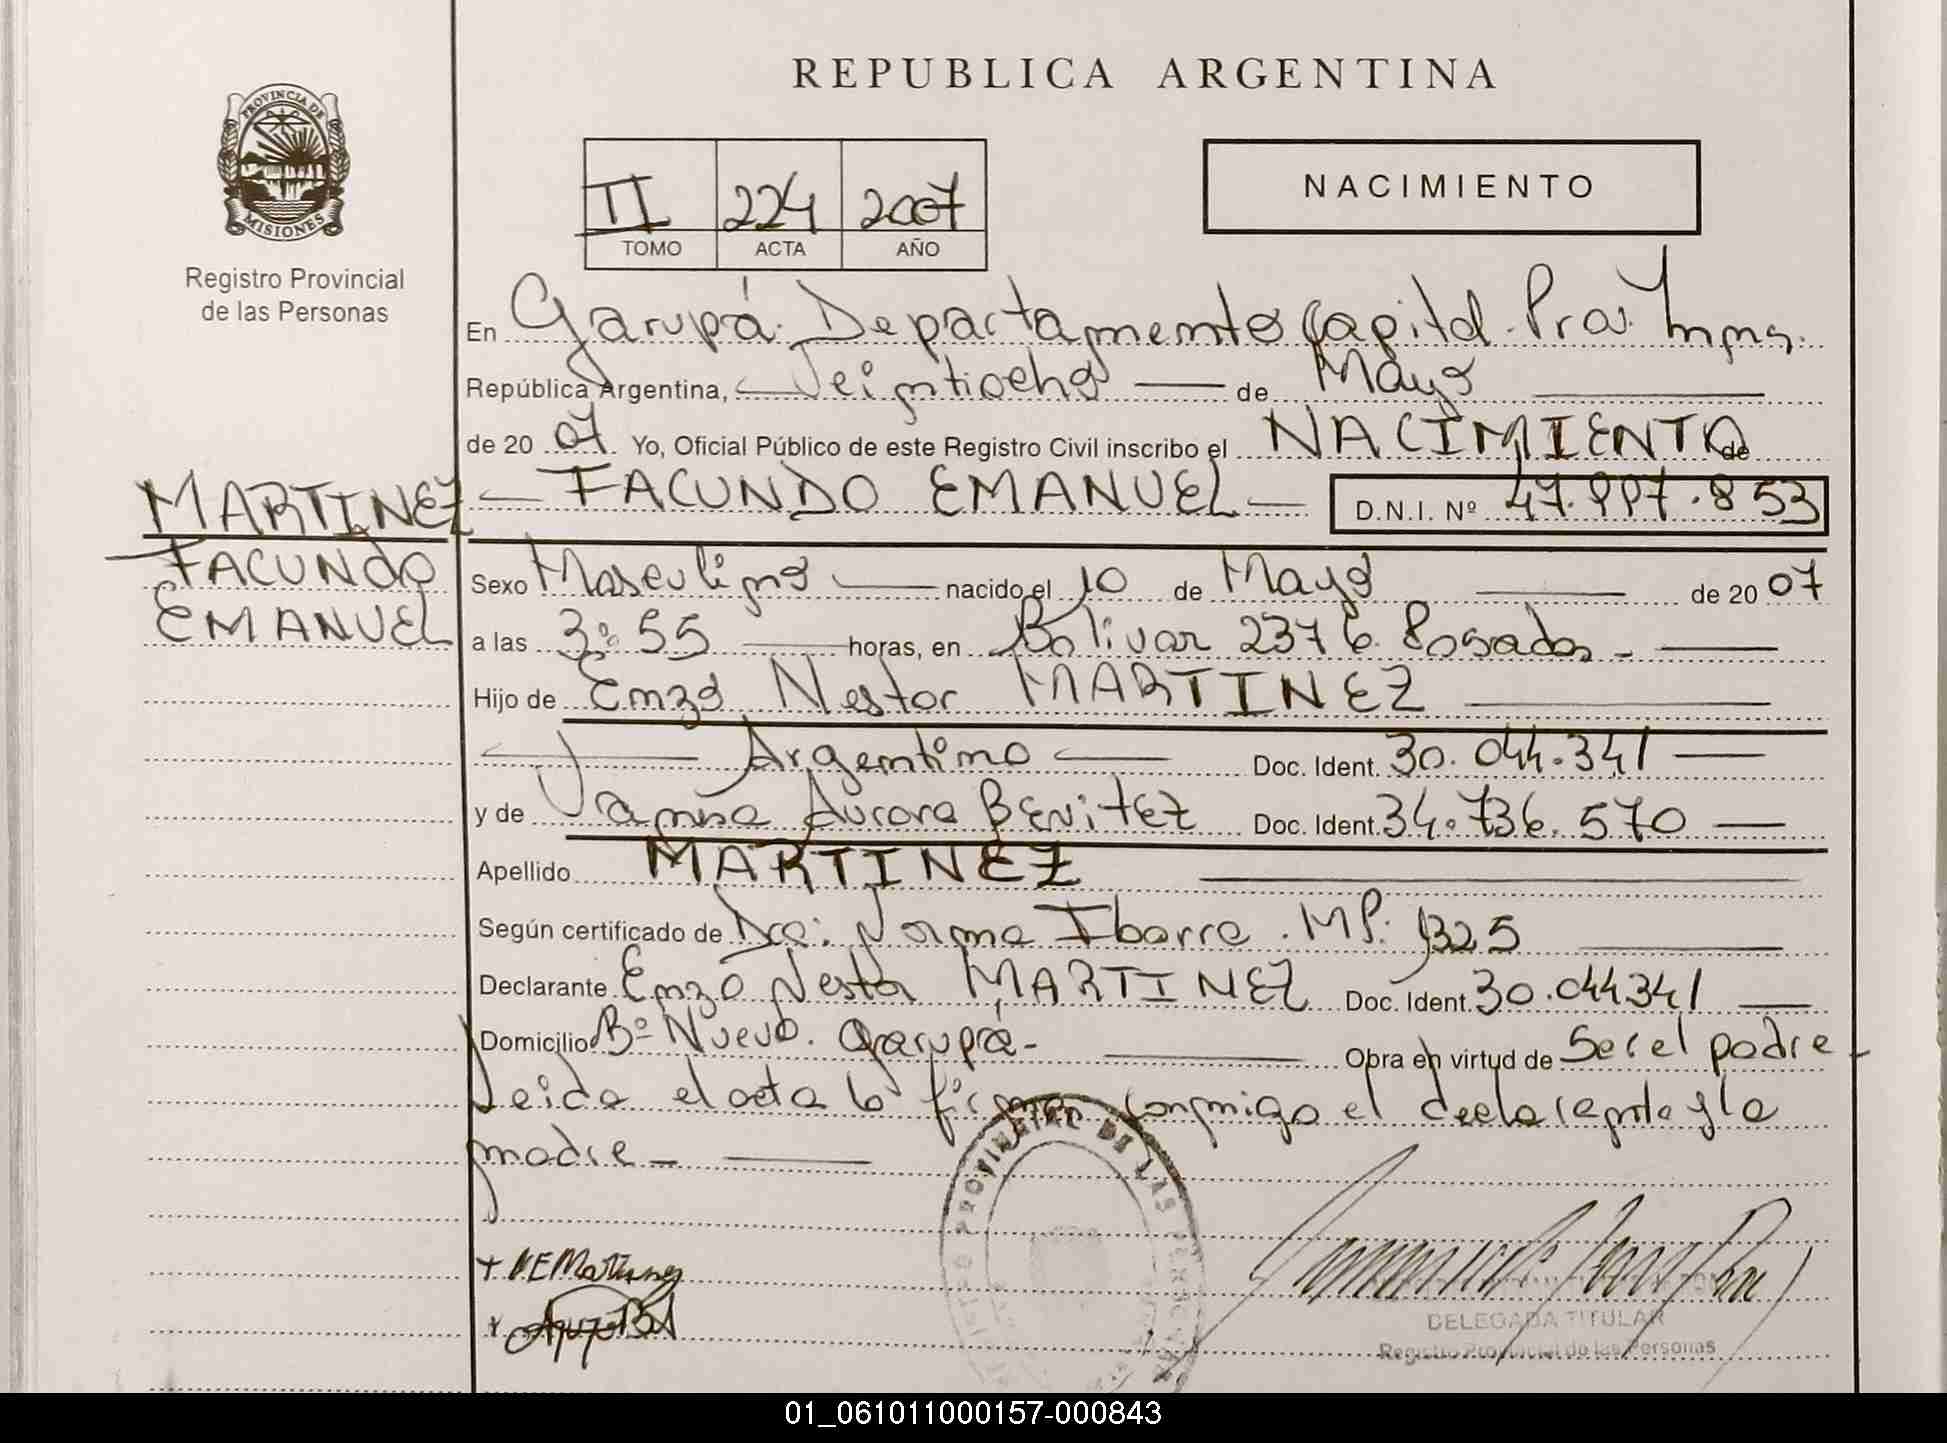 REPUBLICA ARGENTINA
PROVINCIA DE
MISIONES
Registro Provincial
de las Personas
II 224 2007
TOMO ACTA AÑO
NACIMIENTO
En Garupá Departamento Capital Prov.
República Argentina, Veintiocho de Mayo
de 20 07 Yo, Oficial Público de este Registro Civil inscribo el NACIMIENTO de
FACUNDO EMANUEL D.N.I. Nº 47.997.853
MARTINEZ
FACUNDO
EMANUEL
Sexo Masculino nacido el 10 de Mayo de 20 07
a las 3:55 horas, en Bolivar 2376 Posadas -
Hijo de Enzo Nestor MARTINEZ
Argentino Doc. Ident. 30.044.341
y de Aurora BENITEZ Doc. Ident. 34.736.570
Apellido MARTINEZ
Según certificado de Dra: Norma Ibarra. MP: 1325
Declarante Enzo Nestor MARTINEZ Doc. Ident. 30.044341
Domicilio Bº Nuevo. Garupá- Obra en virtud de Ser el padre-
Leida el acta la firman conmigo el declarante y la
madre -
REGISTRO PROVINCIAL DE LAS PERSONAS
DELEGADA TITULAR
Registro Provincial de las Personas
01_061011000157-000843